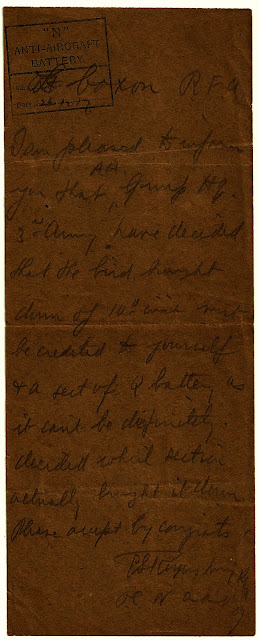 "N"
ANTI-AIRCRAFT
BATTERY.
Coxon R F A
I am pleased to inform
AA
you that Group HQ.
3rd Army, have decided
that the bird brought
down on 10th inst must
be credited to yourself
& a sect of Q battery as
it cant be definitely
decided which section
actually brought it down
Please accept my congrats
OC N